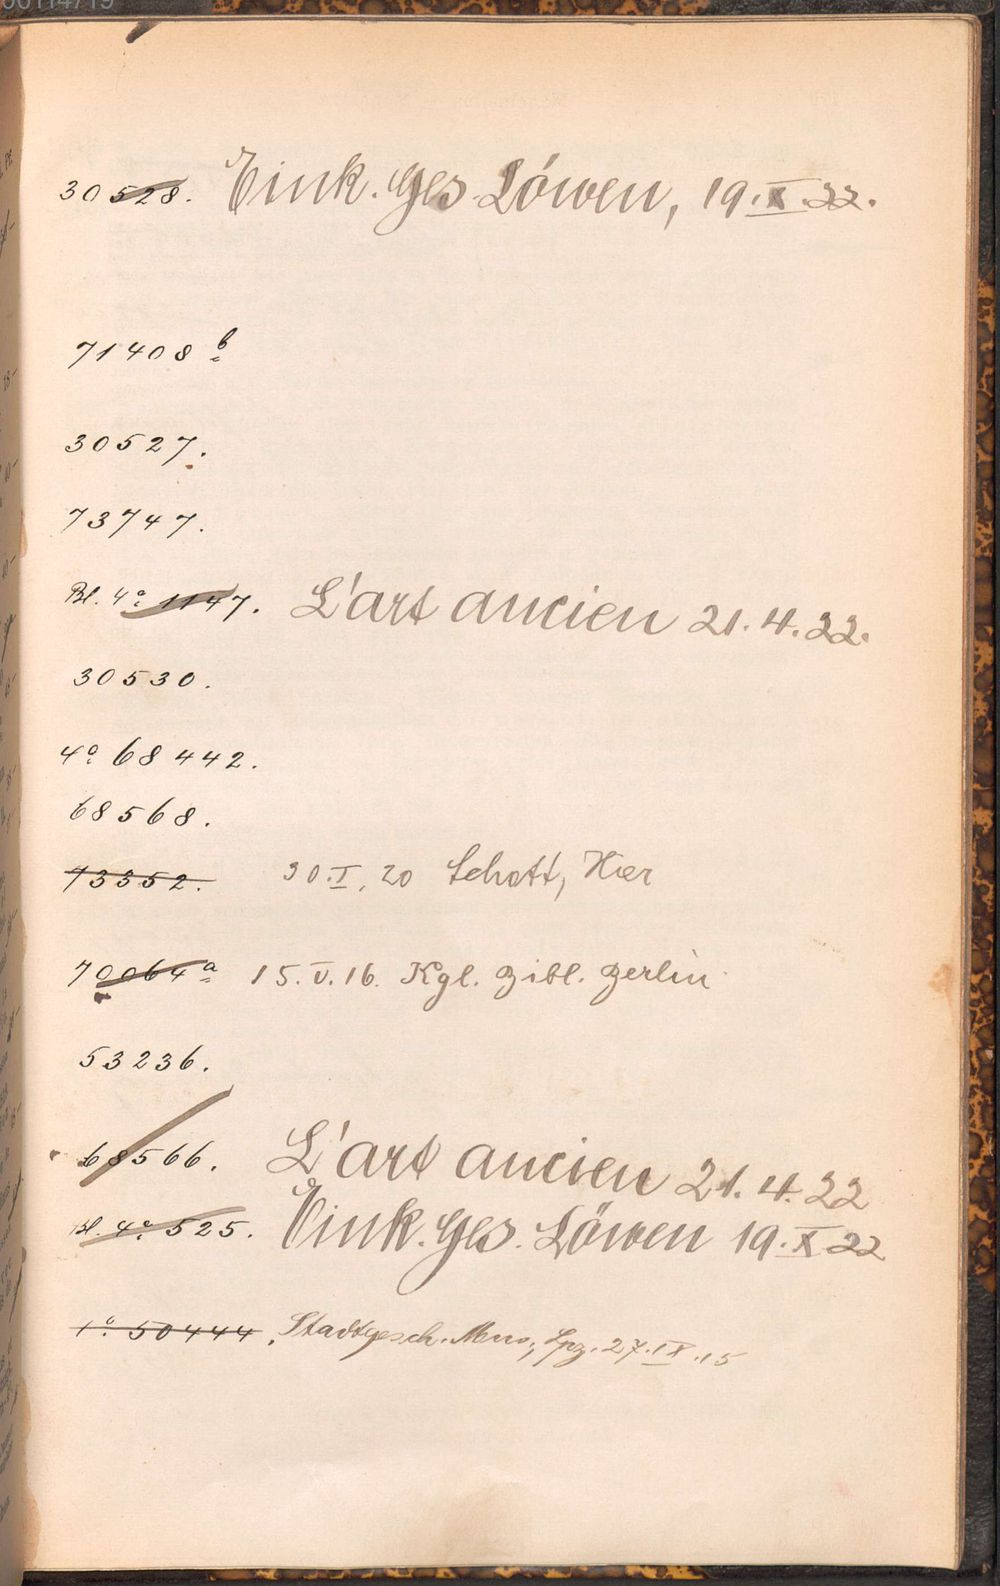 00114719
30528. Eink. Ges. Löwen, 19.X.22.
71408 b
30527.
73747.
Bl. 4° 1147. L'art ancien 21.4.22.
30530.
4° 68442.
68568.
73352. 30.I.20 Schott, Hier
70064 a 15.V.16. Kgl. Bibl. Berlin
53236.
68566. L'art ancien 21.4.22
Bl. 4° 525. Eink. Ges. Löwen 19.X.22
1° 50444. Stadtgesch. Mus., Lpz. 27.IX.15